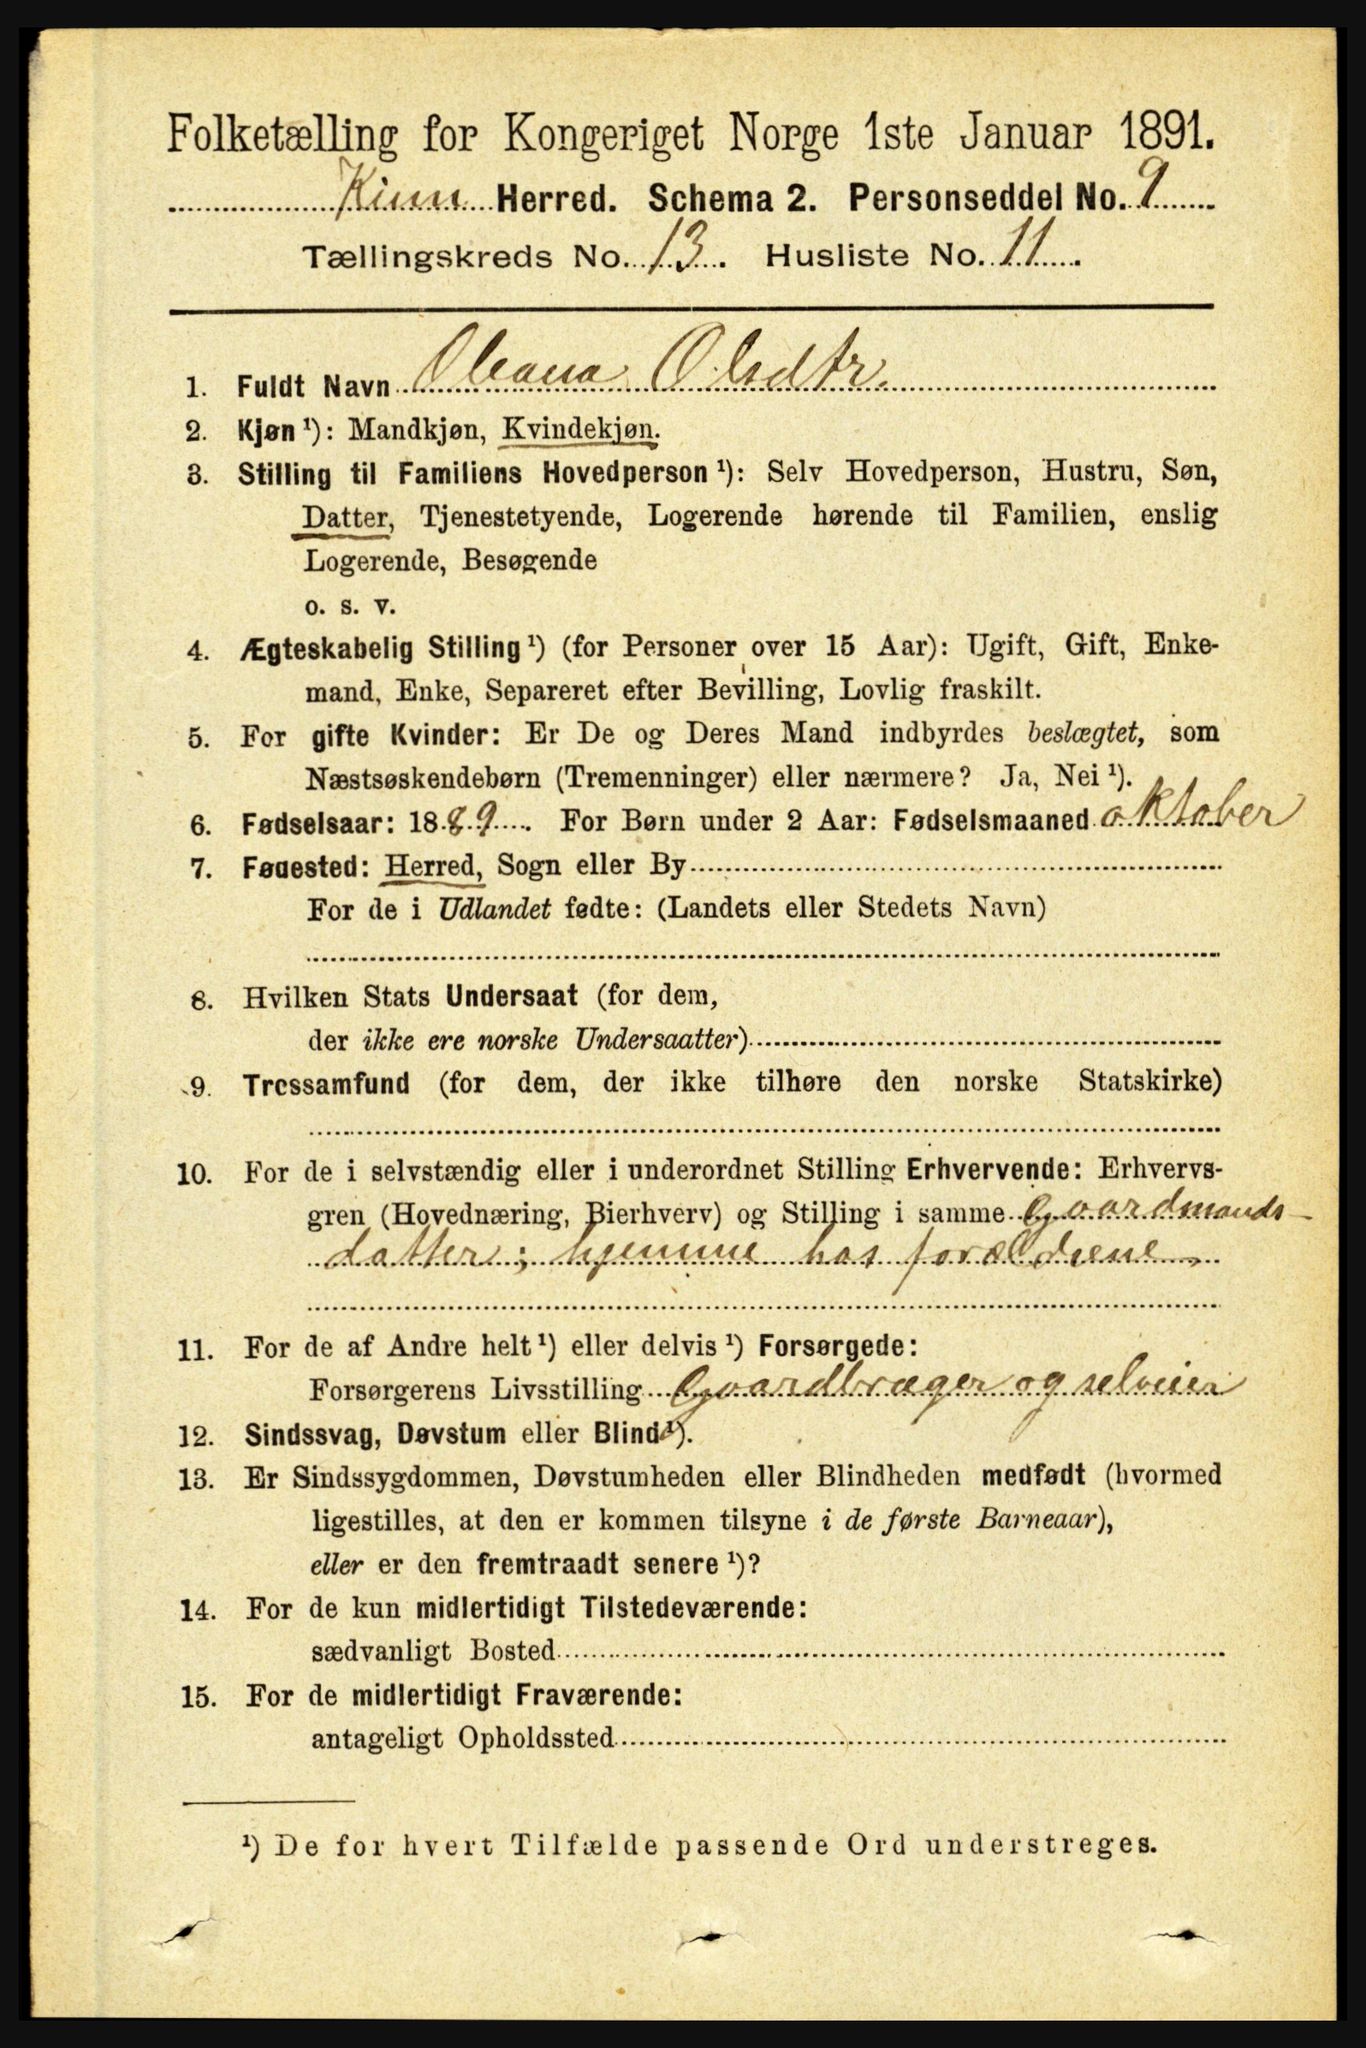 Folketælling for Kongeriget Norge 1ste Januar 1891.
Kinn Herred. Schema 2. Personseddel No. 9
Tællingskreds No. 13. Husliste No. 11.
1. Fuldt Navn Oleana Olsdtr.
2. Kjøn ¹): Mandkjøn, Kvindekjøn.
3. Stilling til Familiens Hovedperson ¹): Selv Hovedperson, Hustru, Søn,
Datter, Tjenestetyende, Logerende hørende til Familien, enslig
Logerende, Besøgende
o. s. v.
4. Ægteskabelig Stilling ¹) (for Personer over 15 Aar): Ugift, Gift, Enke-
mand, Enke, Separeret efter Bevilling, Lovlig fraskilt.
5. For gifte Kvinder: Er De og Deres Mand indbyrdes beslægtet, som
Næstsøskendebørn (Tremenninger) eller nærmere? Ja, Nei ¹).
6. Fødselsaar: 1889. For Børn under 2 Aar: Fødselsmaaned oktober
7. Fødested: Herred, Sogn eller By
For de i Udlandet fødte: (Landets eller Stedets Navn)
8. Hvilken Stats Undersaat (for dem,
der ikke ere norske Undersaatter)
9. Trossamfund (for dem, der ikke tilhøre den norske Statskirke)
10. For de i selvstændig eller i underordnet Stilling Erhvervende: Erhvervs-
gren (Hovednæring, Bierhverv) og Stilling i samme Gaardmands-
datter; hjemme hos forældrene.
11. For de af Andre helt ¹) eller delvis ¹) Forsørgede:
Forsørgerens Livsstilling Gaardbruger og selveier
12. Sindssvag, Døvstum eller Blind ¹).
13. Er Sindssygdommen, Døvstumheden eller Blindheden medfødt (hvormed
ligestilles, at den er kommen tilsyne i de første Barneaar),
eller er den fremtraadt senere ¹)?
14. For de kun midlertidigt Tilstedeværende:
sædvanligt Bosted
15. For de midlertidigt Fraværende:
antageligt Opholdssted
¹) De for hvert Tilfælde passende Ord understreges.